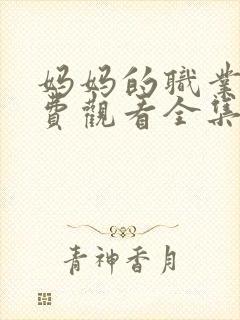 妈妈的職業
費觀看全集
青神香月